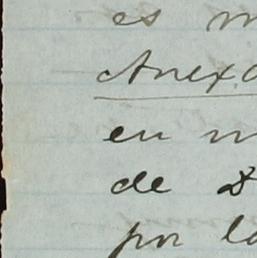 es m
Anexo
en m
de 8
por la